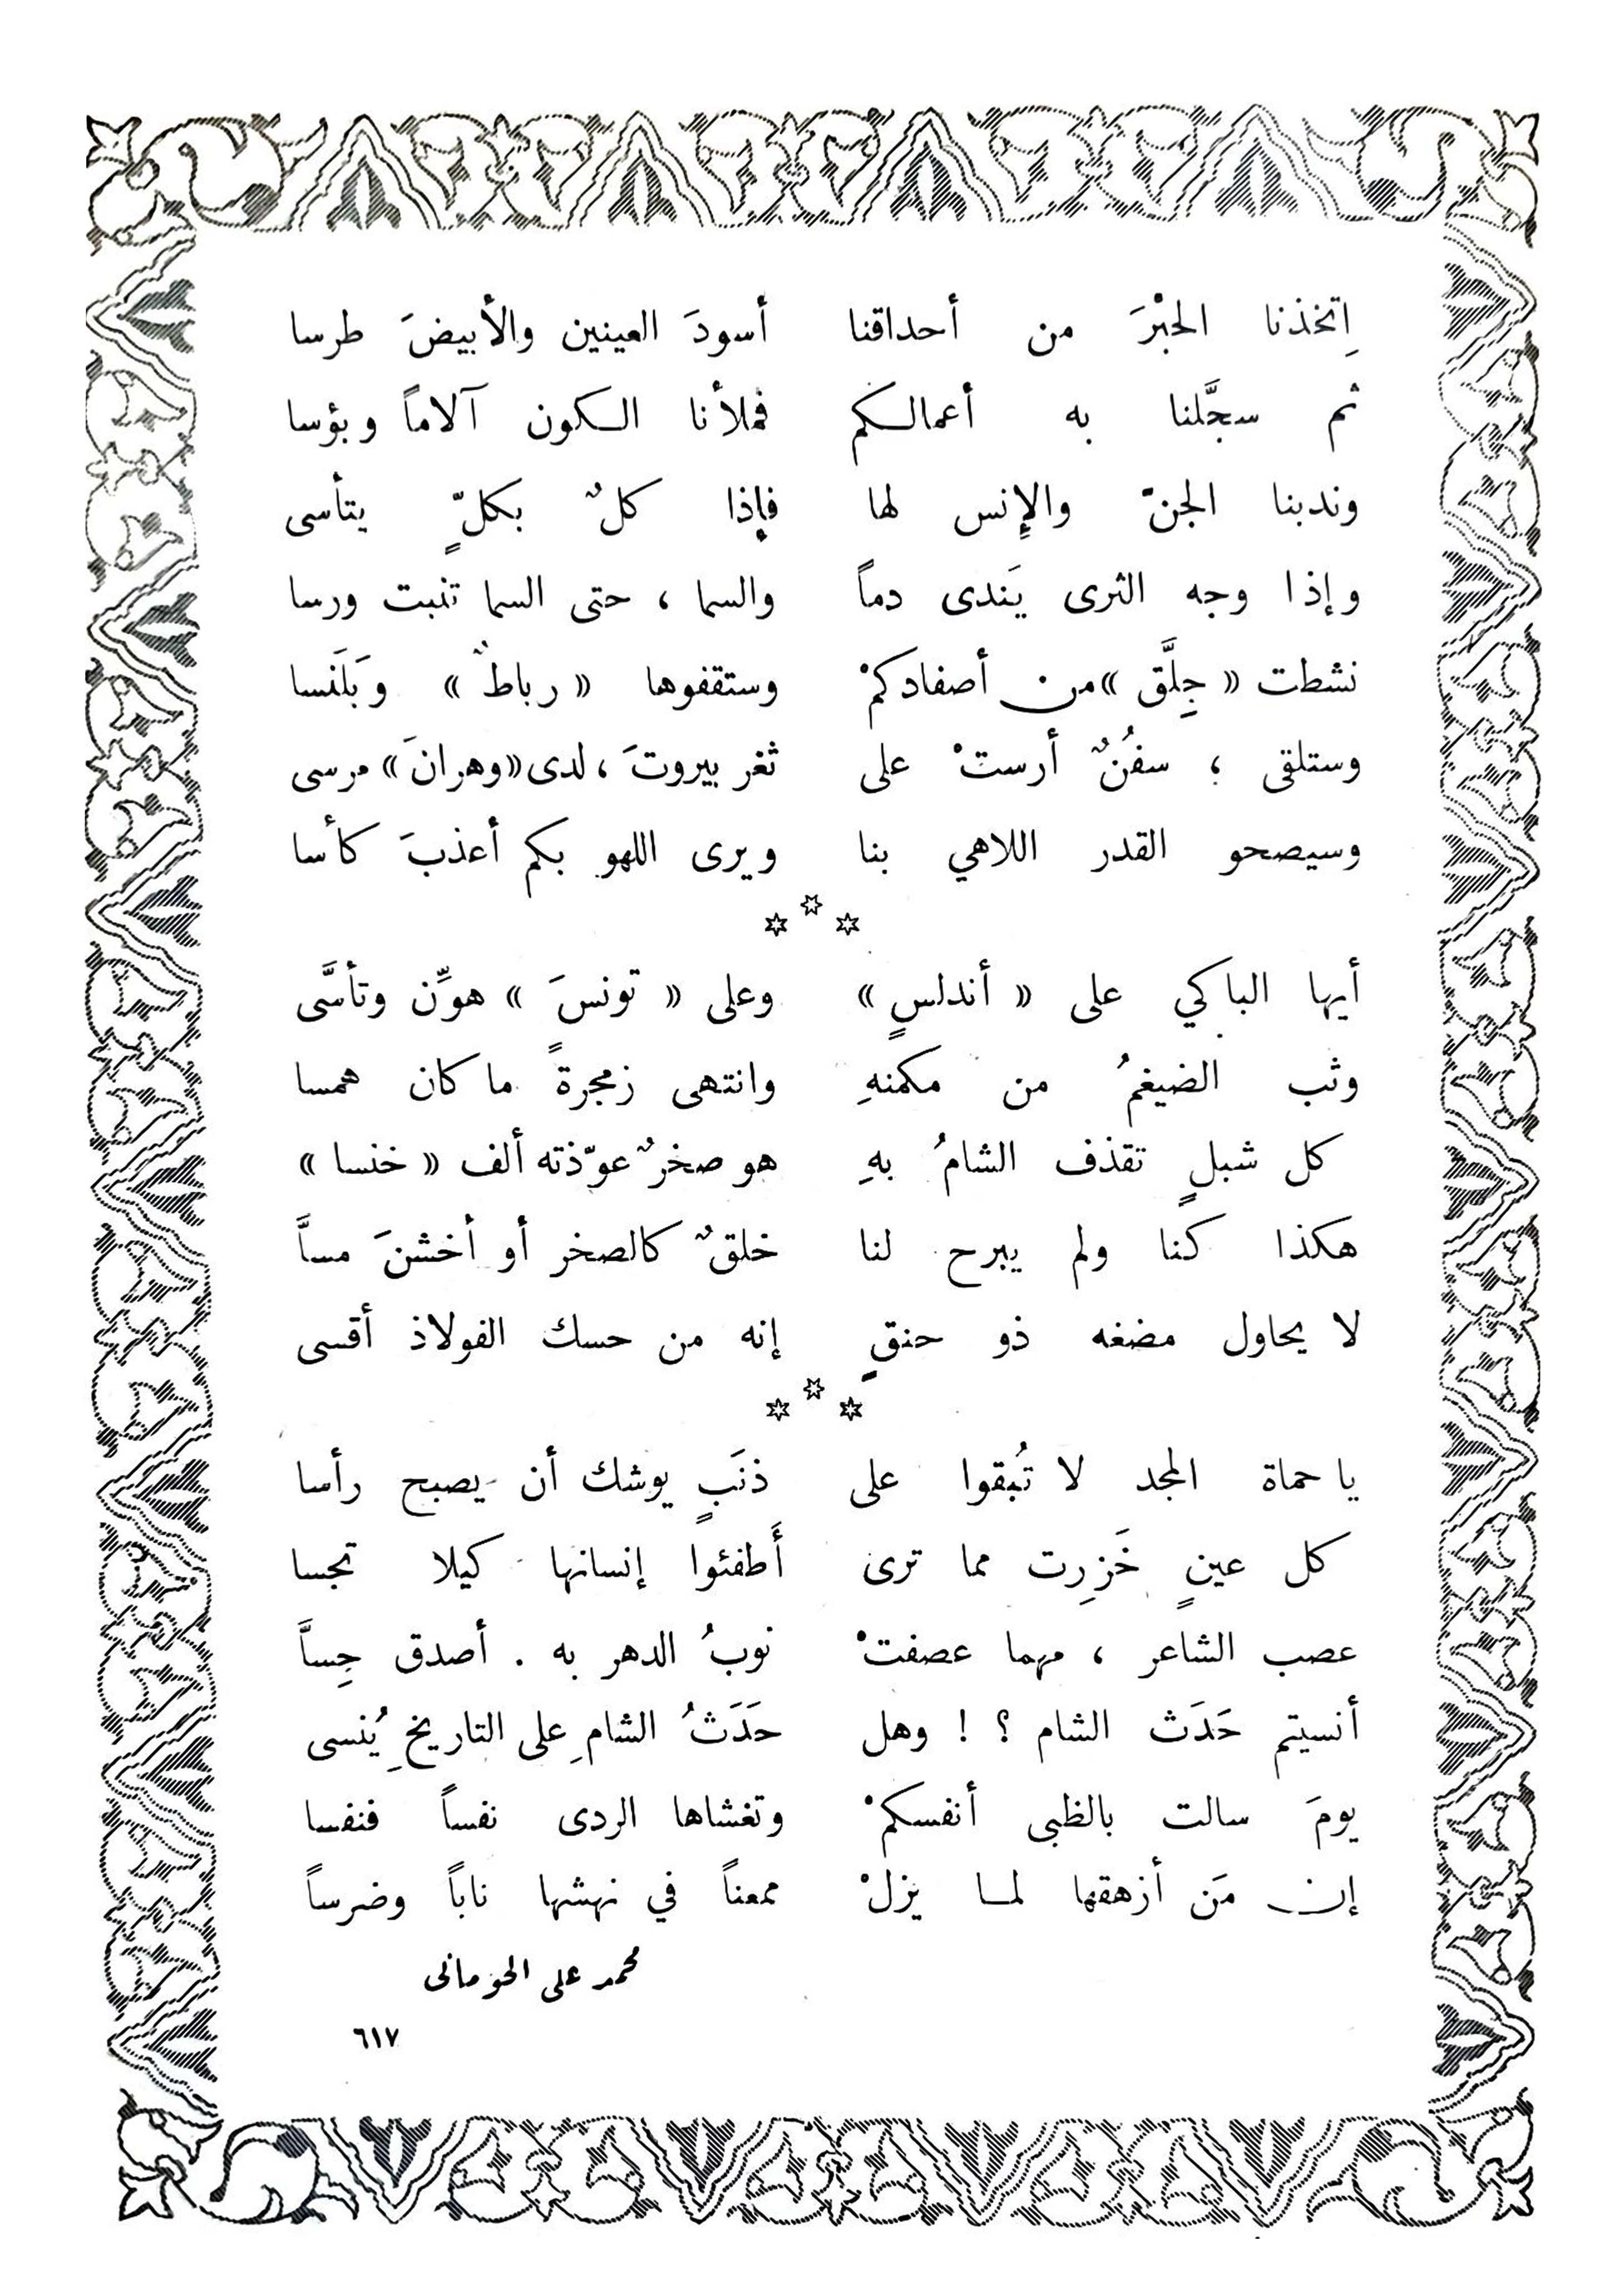 اِتخذنا الحبْرَ من أحداقنا أسودَ العينين والأبيضَ طرسا
ثم سجَّلنا به أعمالكم فملأنا الكون آلاماً وبؤسا
وندبنا الجنّ والإنس لها فإذا كلٌ بكلٍّ يتأسى
وإذا وجه الثرى يَندى دماً والسما ، حتى السما تنبت ورسا
نشطت « جِلَّق » من أصفادكمْ وستقفوها « رباطٌ » وَبَلَنسا
وستلقى ؛ سفُنٌ أرستْ على ثغر بيروتَ ، لدى «وهرانَ» مرسى
وسيصحو القدر اللاهي بنا ويرى اللهو بكم أعذبَ كأسا
***
أيها الباكي على « أندلسٍ » وعلى « تونسَ » هوِّن وتأسَّى
وثب الضيغمُ من مكمنهِ وانتهى زمجرةً ما كان همسا
كل شبلٍ تقذف الشامُ بهِ هو صخرٌ عوّذته ألف « خنسا »
هكذا كنا ولم يبرح لنا خلقٌ كالصخر أو أخشنَ مساَّ
لا يحاول مضغه ذو حنقٍ إنه من حسك الفولاذ أقسى
***
يا حماة المجد لا تُبقوا على ذنَبٍ يوشك أن يصبح رأسا
كل عينٍ خَزِرت مما ترى أَطفئوا إنسانها كيلا تجسا
عصب الشاعر ، مهما عصفتْ نوبُ الدهر به . أصدق حِساَّ
أنسيتم حَدَث الشام ؟ ! وهل حَدَثُ الشامِ على التاريخِ يُنسى
يومَ سالت بالظبى أنفسكمْ وتغشاها الردى نفساً فنفسا
إن مَن أزهقها لما يزلْ ممعناً في نهشها ناباً وضرساً
محمد على الحومانى
٦١٧